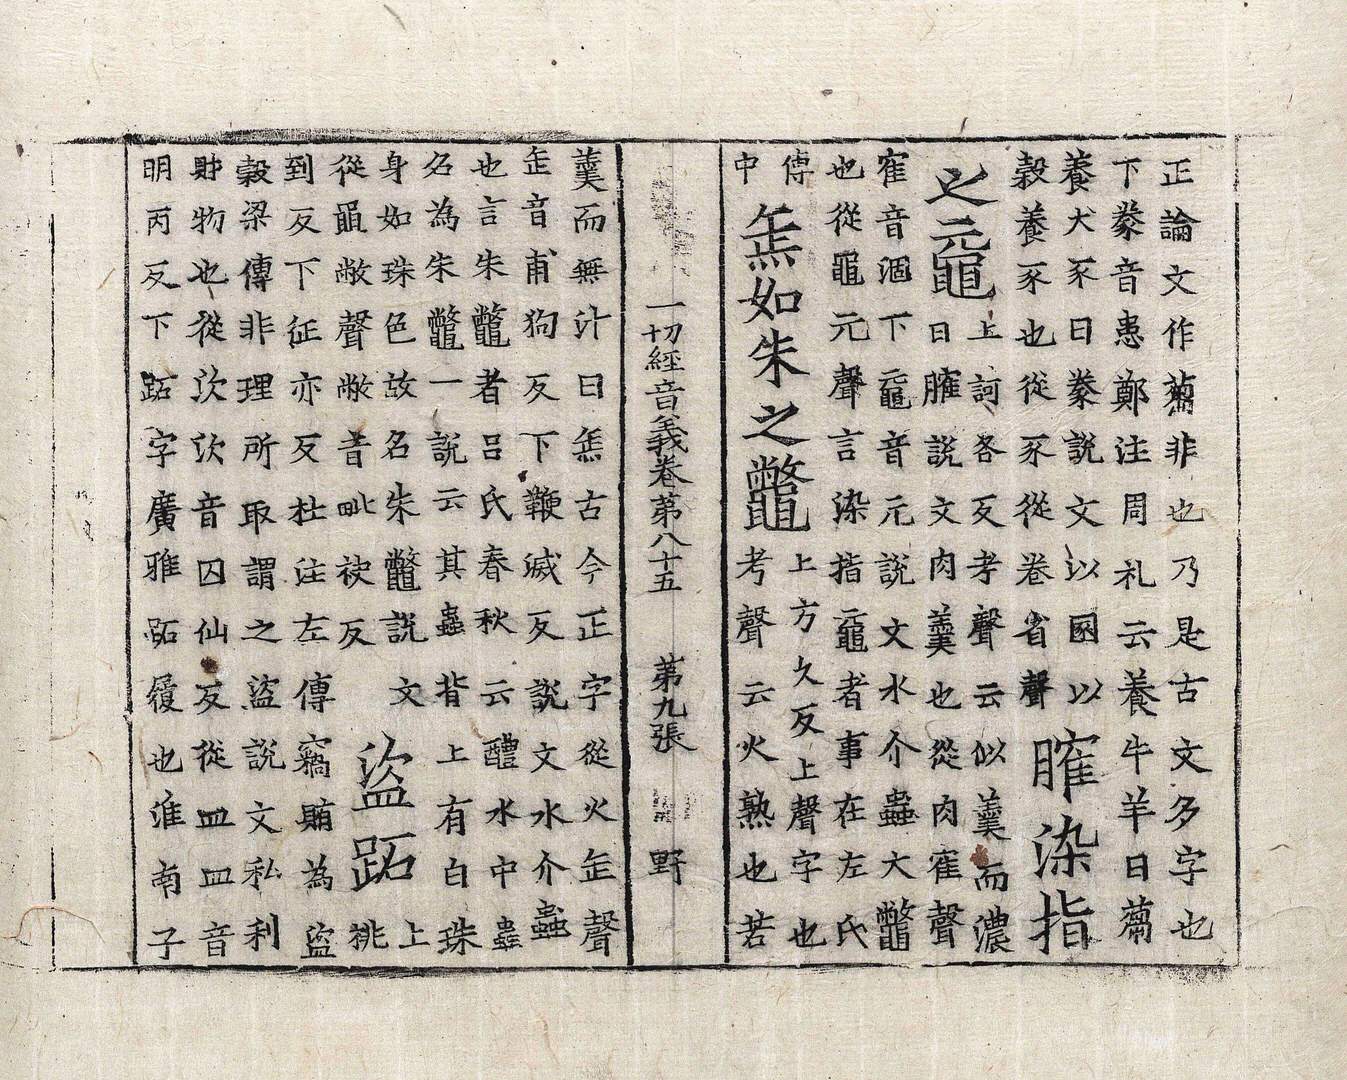 正論文作蒭非也乃是古文多字也
下豢音患鄭注周礼云養牛羊曰蒭
養犬豕曰豢說文以圂以
穀養豕也從豕從卷省聲
臛染指
之黿
上訶各反考聲云似羹而濃
曰臛說文肉羹也從肉隺聲
隺音涸下黿音元說文水介蟲大鼈
也從黽元聲言染指黿者事在左氏
傳
中
缹如朱之鼈
上方久反上聲字也
考聲云火熟也若
一切經音義卷第八十五 第九張 野
羹而無汁曰缹古今正字從火缶聲
缶音甫狗反下鞭滅反說文水介蟲
也言朱鼈者吕氏春秋云醴水中蟲
名為朱鼈一說云其蟲背上有白珠
身如珠色故名朱鼈說文
從黽敝聲敝音毗袂反
盜跖
上
桃
到反下征亦反杜注左傳竊賄為盜
穀梁傳非理所取謂之盜說文私利
財物也從㳄㳄音囚仙反從皿皿音
明丙反下跖字廣雅跖履也淮南子